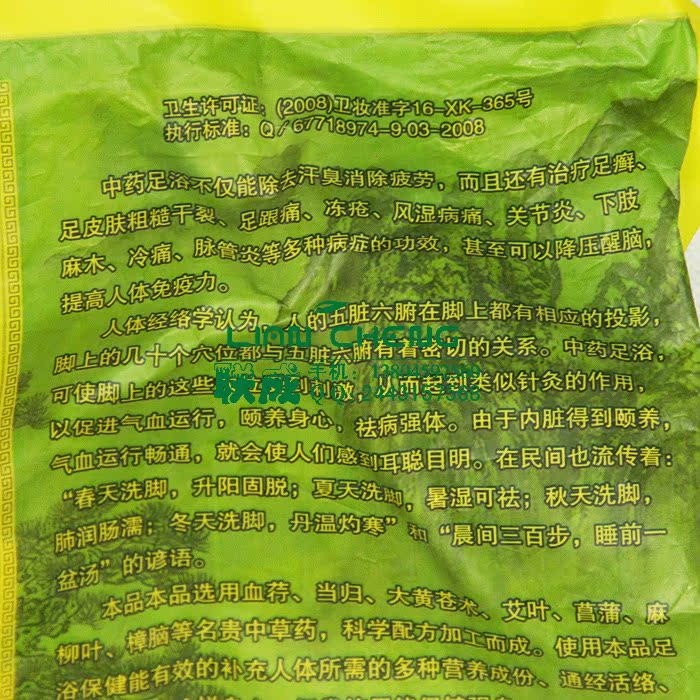 卫生许可证:(2008)卫妆准字16-XK-365号
执行标准:Q/67718974-9-03-2008
中药足浴不仅能除去汗臭消除疲劳,而且还有治疗足癣、
足皮肤粗糙干裂、足跟痛、冻疮、风湿病痛、关节炎、下肢
麻木、冷痛、脉管炎等多种病症的功效,甚至可以降压醒脑,
提高人体免疫力。
人体经络学认为,人的五脏六腑在脚上都有相应的投影,
LIAN CHENG
脚上的几十个穴位都与五脏六腑有着密切的关系。中药足浴,
联成
手机:
可使脚上的这些穴位受到刺激,从而起到类似针灸的作用,
以促进气血运行,颐养身心、祛病强体。由于内脏得到颐养,
气血运行畅通,就会使人们感到耳聪目明。在民间也流传着:
“春天洗脚,升阳固脱;夏天洗脚,暑湿可祛;秋天洗脚,
肺润肠濡;冬天洗脚,丹温灼寒”和“晨间三百步,睡前一
盆汤”的谚语。
本品本品选用血荇、当归、大黄苍术、艾叶、菖蒲、麻
柳叶、樟脑等名贵中草药,科学配方加工而成。使用本品足
浴保健能有效的补充人体所需的多种营养成份、通经活络、